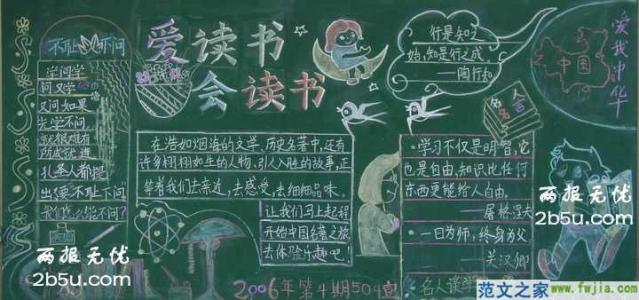 不耻下问
学问学
问又学
又问如果
光学不问
就很难有
所成就进
孔圣人都提
出要不耻下问
我们怎么能不问?
爱读书
会读书
在浩如烟海的文学、历史名著中,还有
许多栩栩如生的人物、引人入胜的故事,正
等着我们去亲近,去感受,去细细品味。
让我们马上起程
开始中国名著之旅
去体验乐趣吧!
2006年第4期504宣
行是知之
始,知是行之成。
——陶行知
中国
爱我中华
·学习不仅是明智,它
也是自由,知识比任何
东西更能给人自由。
——屠格涅夫
·一日为师,终身为父
——关汉卿
名人谈学
两报无忧
2b5u.com
两报无忧
2b5u.com
范文之家
www.fwjia.com